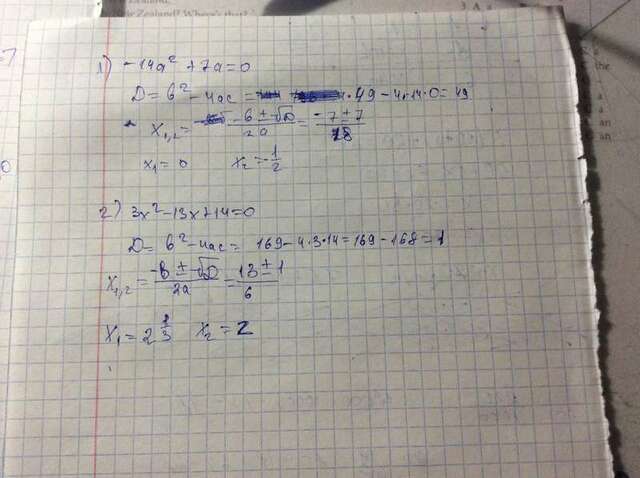 New Zealand? Where's that?
1) -14a² + 7a = 0
D = b² - 4ac = 49 - 4·14·0 = 49
x₁,₂ = (-b ± √D)/2a = (-7 ± 7)/28
x₁ = 0 x₂ = -1/2
2) 3x² - 13x + 14 = 0
D = b² - 4ac = 169 - 4·3·14 = 169 - 168 = 1
x₁,₂ = (-b ± √D)/2a = (13 ± 1)/6
x₁ = 2 1/3 x₂ = 2